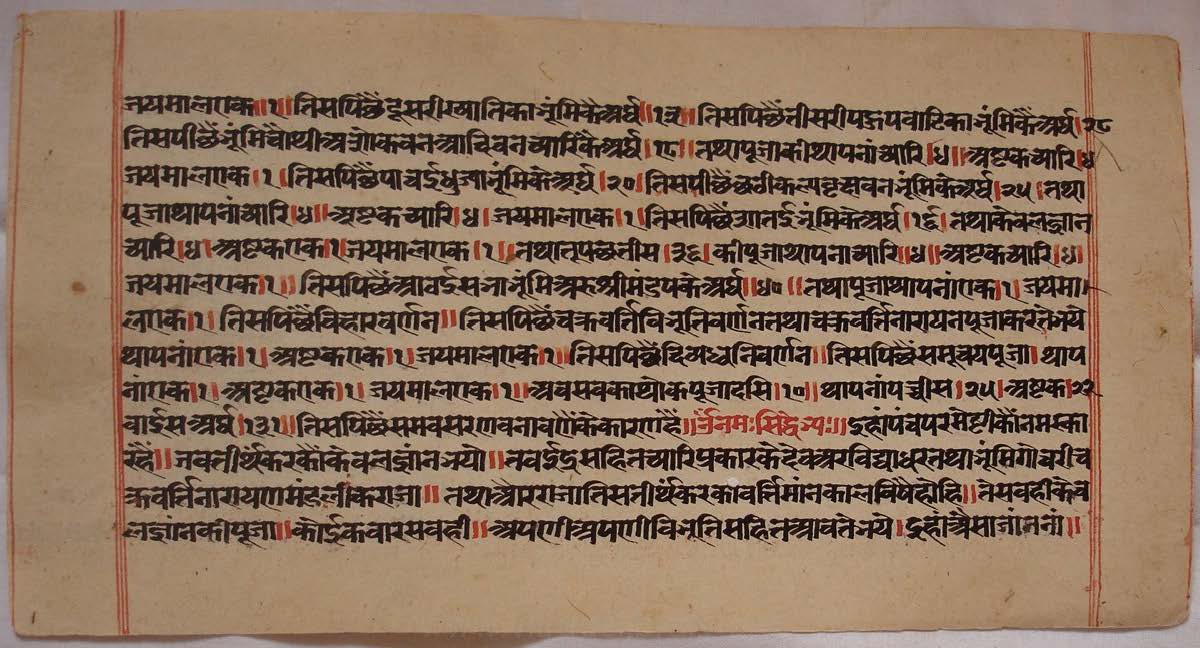 जयमालएक॥१॥तिसपिछैंदूसरीखातिकाभूंमिकैअर्घ॥१३॥तिसपिछैंतीसरीपहुपवाटिकाभूंमिकैंअर्घ॥२८
तिसपीछैंभूंमिचोथीअशोकवनआदिवनच्यारिकैअर्घ॥१८॥तथापूजाकीथापनांच्यारि॥४॥अष्टकच्यारि॥४
जयमालएक।१।तिसपिछैंपाचईधुजाभूंमिकेअर्घ॥२०॥तिसपीछैंछठीकल्पवृक्षवनभूंमिकेअर्घ॥२५।तथा
पूजाथापनांच्यारि॥४॥अष्टकच्यारि॥४।जयमालएक।१।तिसपिछैंसातईभूंमिकेअर्घ।१६।तथाकेवलज्ञान
च्यारि॥४।अष्टकएक।१।जयमालएक।१।तथातूपछतीस।३६।कीपूजाथापनाच्यारि॥४॥अष्टकच्यारि॥४।
जयमालएक॥१॥तिसपिछैंआठईसभाभूंमिअरुश्रीमंडपकेअर्घ॥४०॥तथापूजाथापनांएक।१।जयमा।
लएक।१।तिसपिछैंविहारवर्णन॥तिसपिछैंचक्रवर्तिविभूतिवर्णनतथाचक्रवर्त्तिनारायनपूजाकरतेभये
थापनांएक।१।अष्टकएक।१।जयमालएक॥१॥तिसपिछैंदिव्यध्वनिवर्णन॥तिसपिछैंसमुचयपूजा।थाप
नांएक।१।अष्टकएक।१।जयमालएक।१॥अवसवकाथोकपूजादसि।१०।थापनांपच्चीस।२५।अष्टक२२
वाईसअर्घ।१३१॥तिसपिछैंसमवसरणवनावणेंकेकारणहैं॥ॐनमःसिद्धेभ्यः॥इहांपंचपरमेष्टीकौंनमस्का
रहैं॥जवतीर्थंकरकौंकेवलज्ञांनभयो॥तवइंद्रसहितच्यारिप्रकारकेदेवअरविद्याधरतथाभूंमिगोचरीच
क्रवर्त्तिनारायणमंडलीकराजा॥तथाऔरराजातिसतीर्थंकरकावर्त्तिमांनकालविषैंहोहि॥तेसवहीकेव
लज्ञांनकीपूजा॥कोंईकवारसवही॥अपणीअपणीविभूतिसहितआवतेभये।इहांअैसाजांननां॥